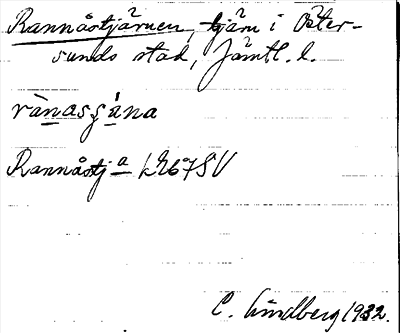 Rannåstjärnen, tjärn i Öster-
sunds stad, Jämtl. l.
rànasʃána
Rannåstj a LE67SV
C. Lindberg 1932.